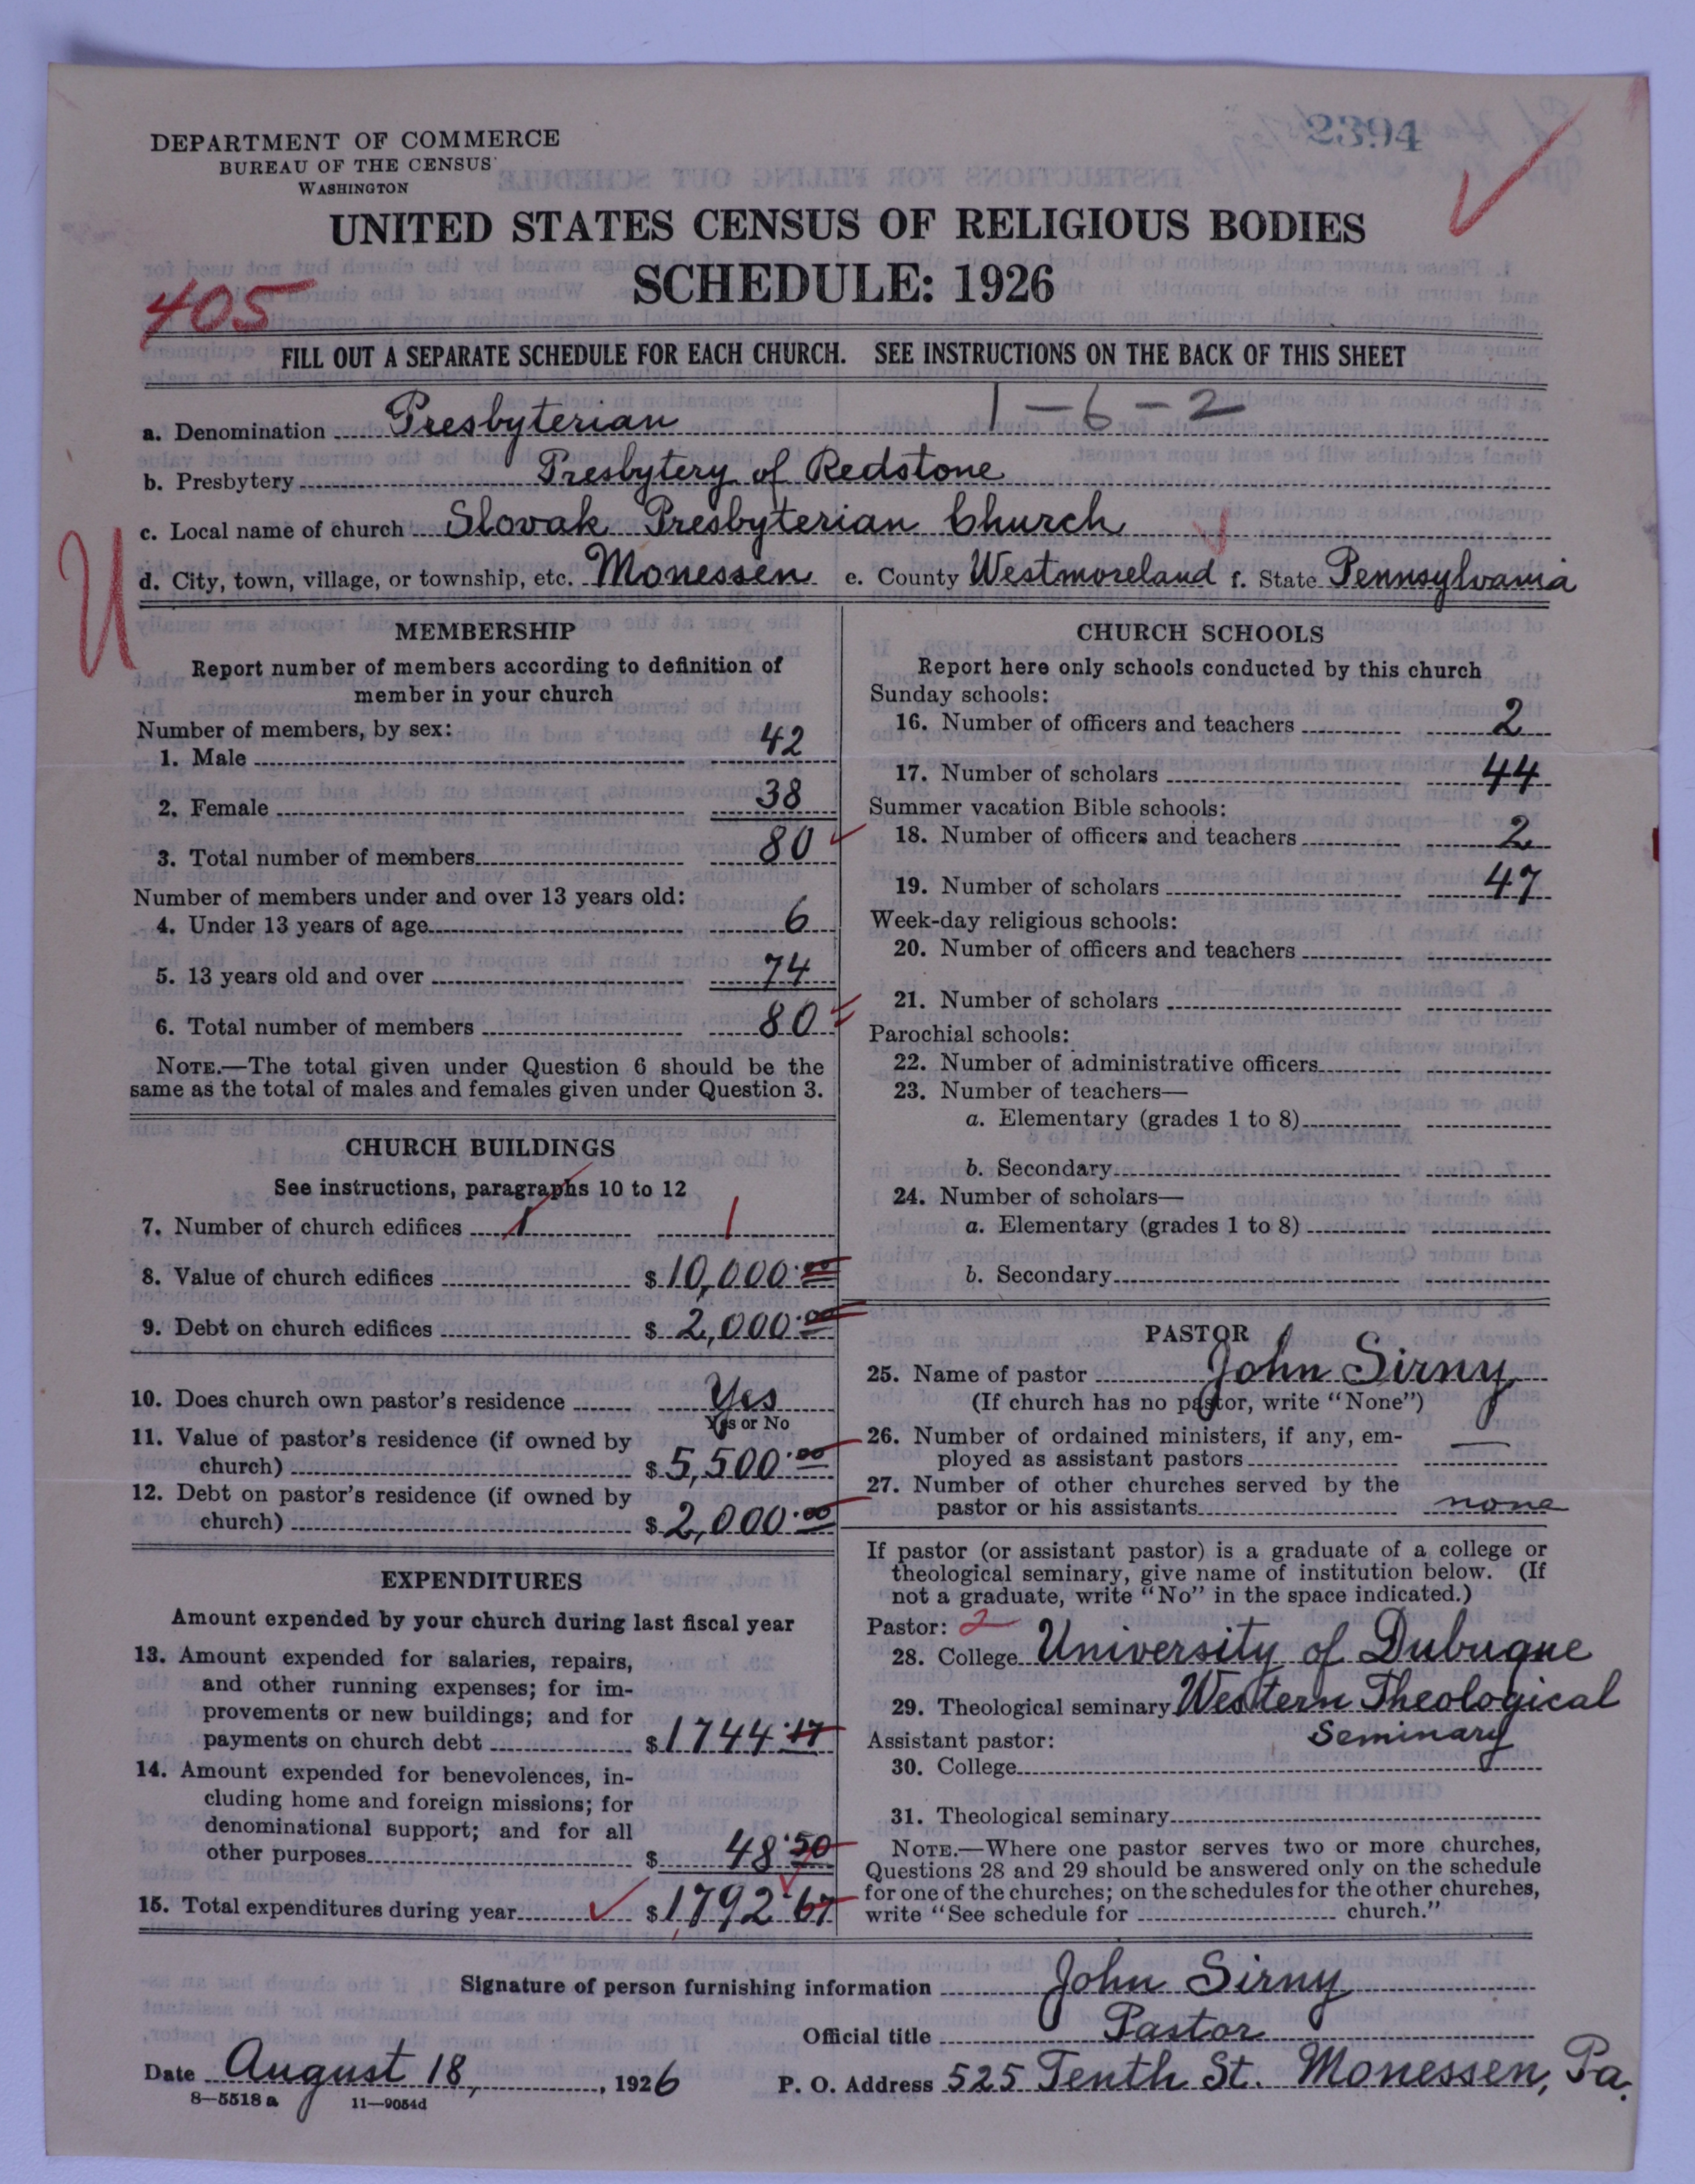 2394
DEPARTMENT OF COMMERCE
BUREAU OF THE CENSUS
WASHINGTON
UNITED STATES CENSUS OF RELIGIOUS BODIES
SCHEDULE: 1926
405
FILL OUT A SEPARATE SCHEDULE FOR EACH CHURCH. SEE INSTRUCTIONS ON THE BACK OF THIS SHEET
1-6-2
a. Denomination Presbyterian
b. Presbytery Presbytery of Redstone
c. Local name of church Slovak Presbyterian Church
d. City, town, village, or township, etc. Monessen e. County Westmoreland f. State Pennsylvania
U
MEMBERSHIP
Report number of members according to definition of
member in your church
Number of members, by sex:
1. Male 42
2. Female 38
3. Total number of members 80
Number of members under and over 13 years old:
4. Under 13 years of age 6
5. 13 years old and over 74
6. Total number of members 80
NOTE.—The total given under Question 6 should be the
same as the total of males and females given under Question 3.
CHURCH BUILDINGS
See instructions, paragraphs 10 to 12
7. Number of church edifices 1 1
8. Value of church edifices $10,000.00
9. Debt on church edifices $2,000.00
10. Does church own pastor's residence Yes
Yes or No
11. Value of pastor's residence (if owned by
church) $5,500.00
12. Debt on pastor's residence (if owned by
church) $2,000.00
EXPENDITURES
Amount expended by your church during last fiscal year
13. Amount expended for salaries, repairs,
and other running expenses; for im-
provements or new buildings; and for
payments on church debt $1744.17
14. Amount expended for benevolences, in-
cluding home and foreign missions; for
denominational support; and for all
other purposes $48.50
15. Total expenditures during year $1792.67
CHURCH SCHOOLS
Report here only schools conducted by this church
Sunday schools:
16. Number of officers and teachers 2
17. Number of scholars 44
Summer vacation Bible schools:
18. Number of officers and teachers 2
19. Number of scholars 47
Week-day religious schools:
20. Number of officers and teachers
21. Number of scholars
Parochial schools:
22. Number of administrative officers
23. Number of teachers—
a. Elementary (grades 1 to 8)
b. Secondary
24. Number of scholars—
a. Elementary (grades 1 to 8)
b. Secondary
PASTOR
25. Name of pastor John Sirny
(If church has no pastor, write "None")
26. Number of ordained ministers, if any, em-
ployed as assistant pastors —
27. Number of other churches served by the
pastor or his assistants none
If pastor (or assistant pastor) is a graduate of a college or
theological seminary, give name of institution below. (If
not a graduate, write "No" in the space indicated.)
Pastor: 2
28. College University of Dubuque
29. Theological seminary Western Theological
Seminary
Assistant pastor:
30. College
31. Theological seminary
NOTE.—Where one pastor serves two or more churches,
Questions 28 and 29 should be answered only on the schedule
for one of the churches; on the schedules for the other churches,
write "See schedule for church."
Signature of person furnishing information John Sirny
Official title Pastor
Date August 18, 1926 P. O. Address 525 Tenth St. Monessen, Pa.
8—5518a 11—9054d